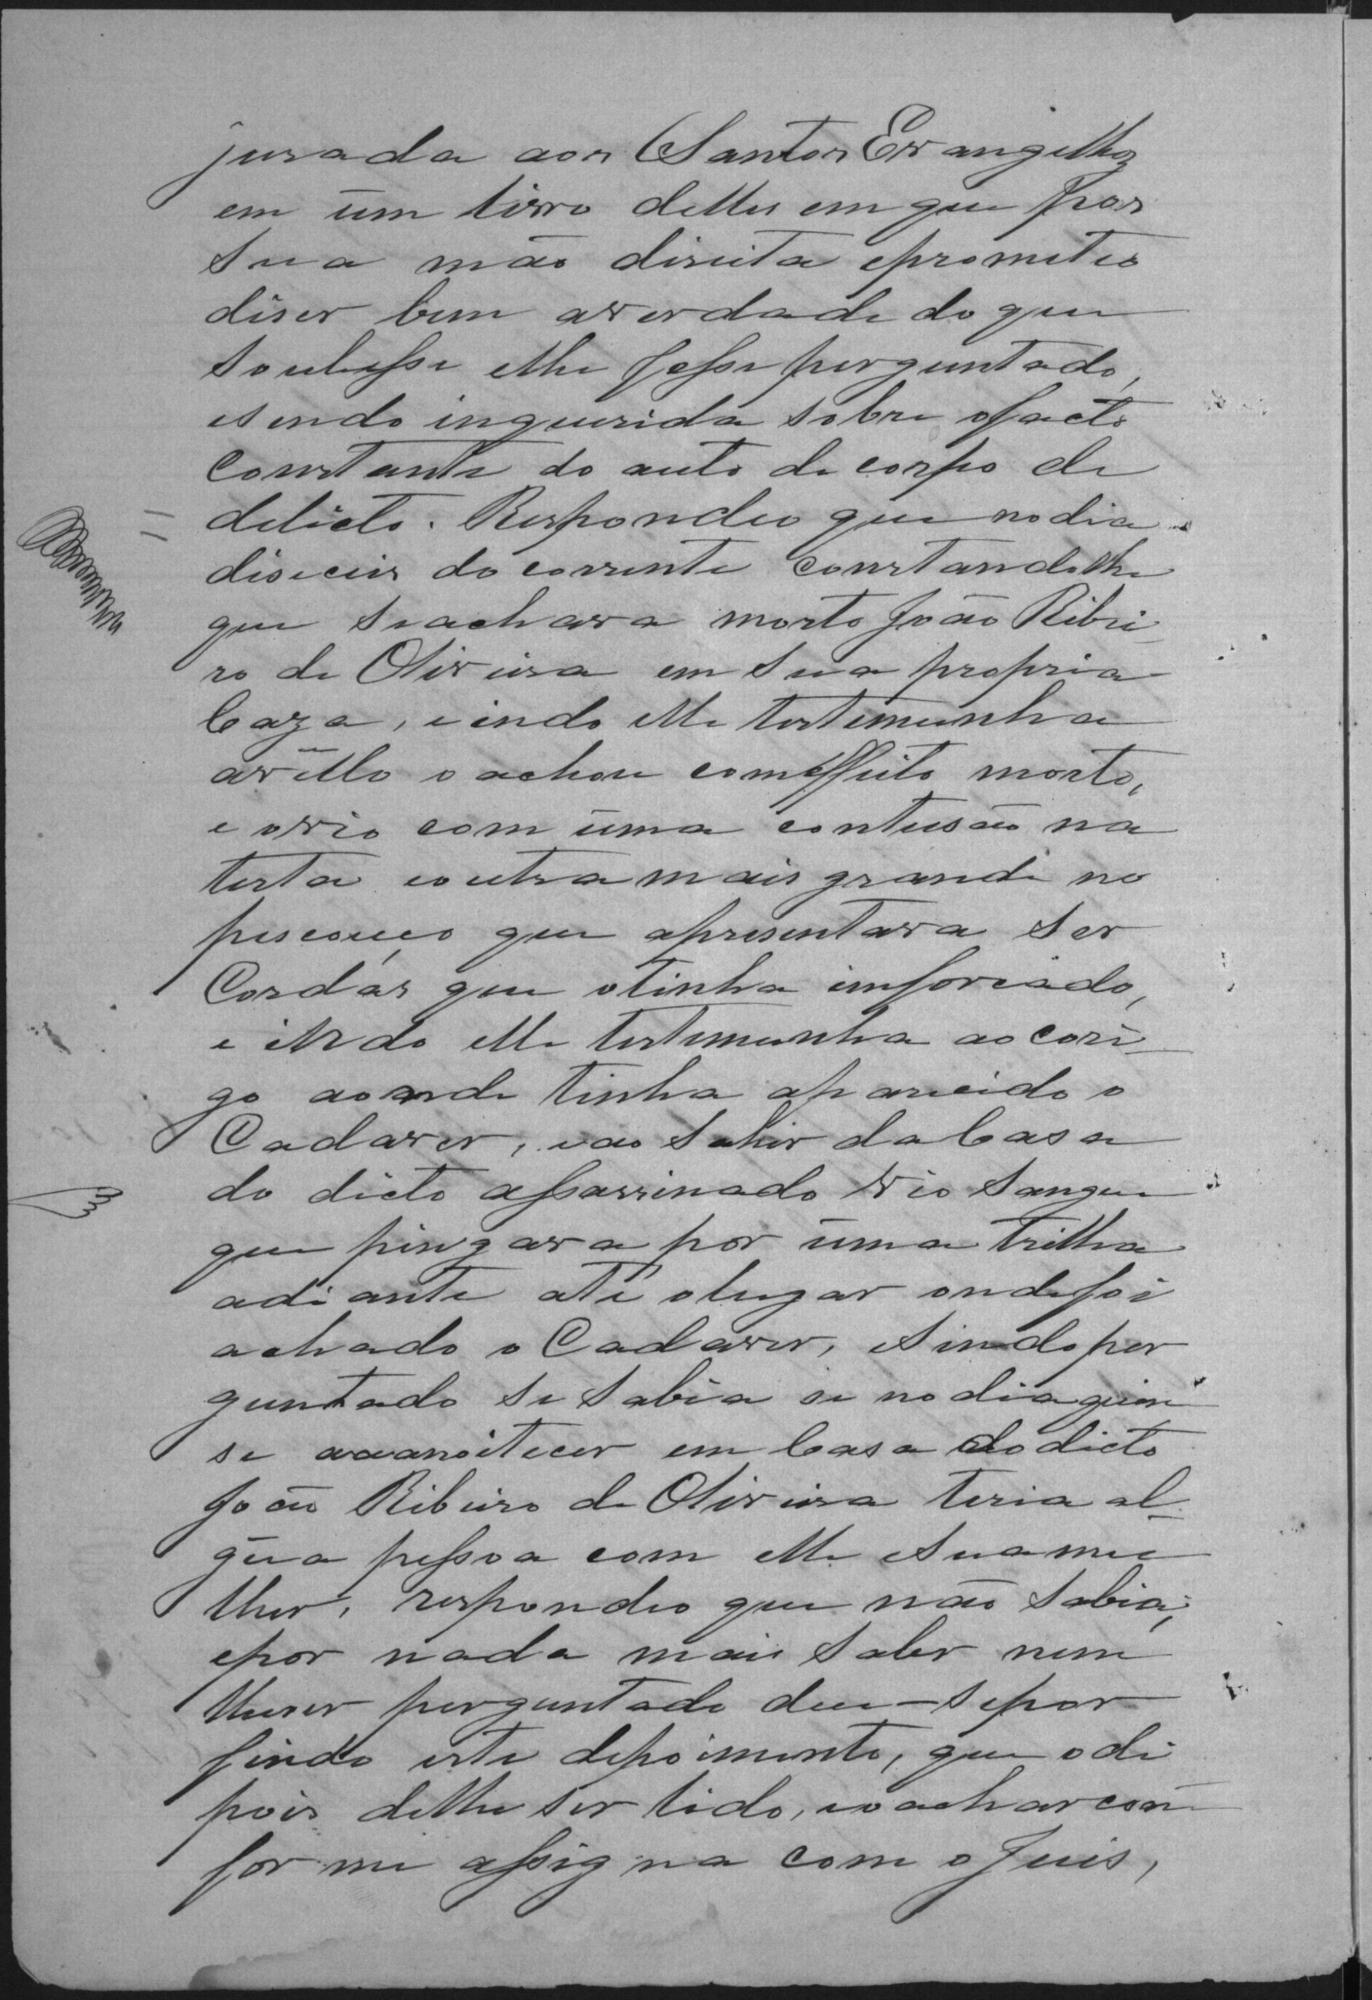 jurada aos Santos Evangelhos
em um livro delles em que pos
sua mão direita eprometeo
diser bem averdade do que
soubesse elhe fosse perguntado,
esendo inquerida sobre ofacto
constante do auto de corpo de
delicto. Respondeo que nodia
diseceis do corrente constandolhe
que seachava morto João Ribei
ro de Oliveira em sua propria
Caza, eindo elle testemunha
avêllo o achou comeffeito morto,
e ovio com uma contusão na
testa eoutra mais grande no
pescouço que apresentava ser
Cordas que otinha emforcado,
e indo elle testemunha ao cori
go aonde tinha aparecido o
Cadaver, eao sahir da Casa
do dicto assassinado vio sangue
que pingava por uma trilha
adiante até olugar ondefoi
achado o Cadaver, esendo per
guntado se sabia se nodia quin
se aoanoitecer em Casa do dicto
João Ribeiro de Oliveira teria al
gũa pessoa com elle esua mu
lher, respondeo que não sabia,
epor nada mais saber nem
lheser perguntado deu-se por
findo este depoimento, que ode
pois delhe ser lido, eoachar con
forme assigna com o Juis,